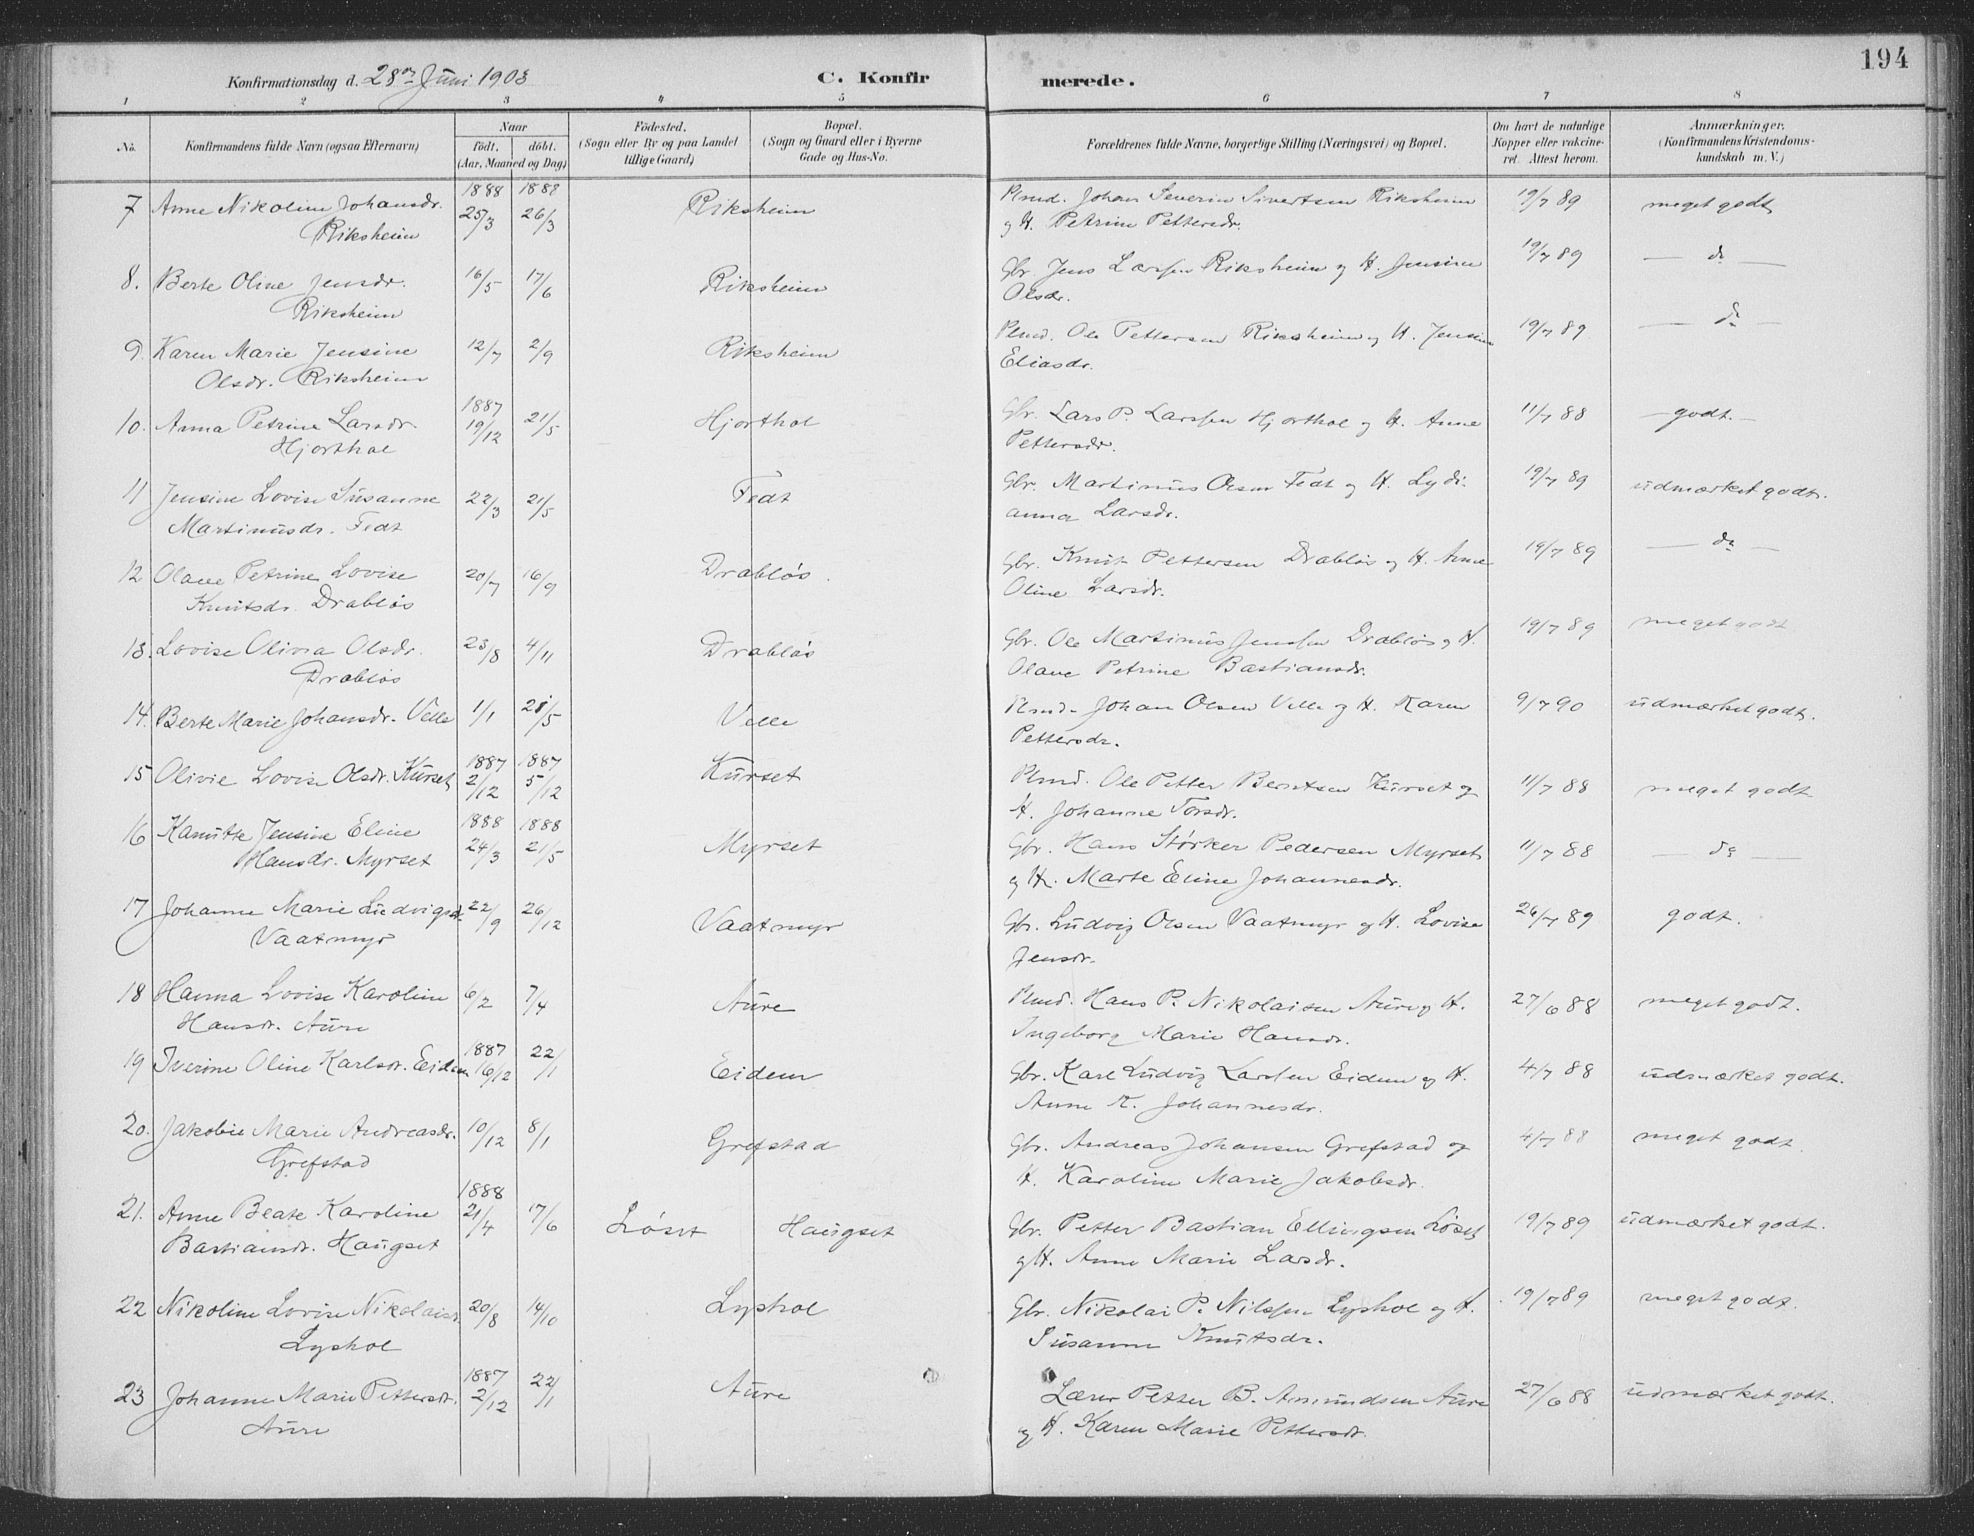 194
Konfirmationsdag d. 28de Juni 1903 C. Konfir merede.
1 2 3 4 5 6 7 8
No. Konfirmandens fulde Navn (ogsaa Efternavn) Naar födt. döbt. (Aar, Maaned og Dag) Födested. (Sogn eller By og paa Landet tillige Gaard) Bopæl. (Sogn og Gaard eller i Byerne Gade og Hus-No. Forældrenes fulde Navne, borgerlige Stilling (Næringsvei) og Bopæl. Om havt de naturlige Kopper eller vakcineret. Attest herom. Anmærkninger. (Konfirmandens Kristendomskundskab m. V.)
7 Anne Nikoline Johansdr. 1888 25/3 1888 26/3 Riksheim Plmd. Johan Severin Sivertsen Riksheim 19/7 89 meget godt
Riksheim og H. Petrine Pettersdr.
8. Berte Oline Jensdr. 16/5 17/6 Riksheim Gbr. Jens Larssen Riksheim og H. Jensine 19/7 89 — do —
Riksheim Olsdr.
9. Karen Marie Jensine 12/7 2/9 Riksheim Plmd. Ole Pettersen Riksheim og H. Jensine 19/7 89 — do —
Olsdr. Riksheim Eliasdr.
10. Anna Petrine Larsdr. 1887 19/12 21/5 Hjorthol Gbr. Lars P. Larssen Hjorthol og H. Anne 11/7 88 — godt. —
Hjorthol Pettersdr.
11 Jensine Lovise Susanne 22/3 21/5 Fedt Gbr. Martinus Olsen Fedt og H. Lydi- 19/7 89 udmærket godt.
Martinusdr. Fedt anna Larsdr.
12 Olave Petrine Lovise 20/7 16/9 Drabløs. Gbr. Knut Pettersen Drabløs og H. Anne 19/7 89 — do —
Knutsdr. Drabløs Oline Larsdr.
13. Lovise Olivia Olsdr. 23/8 4/11 Drabløs Gbr. Ole Martinus Jenssen Drabløs og H. 19/7 89 meget godt
Drabløs Olave Petrine Bastiansdr.
14. Berte Marie Johansdr. Velle 1/1 21/5 Velle Plmd. Johan Olsen Velle og H. Karen 9/7 90 udmærket godt.
Pettersdr.
15 Olivie Lovise Olsdr. Kurset 1887 2/12 1887 5/12 Kurset Plmd. Ole Petter Berntsen Kurset og 11/7 88 meget godt
H. Johanne Torsdr.
16 Kanutte Jensine Eline 1888 24/3 1888 21/5 Myrset Gbr. Hans Størker Pedersen Myrset 11/7 88 — do —
Hansdr. Myrset og H. Marte Eline Johannesdr.
17 Johanne Marie Ludvigsd. 22/9 26/12 Vaatmyr Gbr. Ludvig Olsen Vaatmyr og H. Lovise 26/7 89 godt.
Vaatmyr Jensdr.
18 Hanna Lovise Karoline 6/2 7/4 Aure Plmd. Hans P. Nikolaisen Aure og H. 27/6 88 meget godt.
Hansdr. Aure Ingeborg Marie Hansdr.
19 Iverine Oline Karlsdr. Eidem 1887 16/12 22/1 Eidem Gbr. Karl Ludvig Larssen Eidem og H. 4/7 88 udmærket godt.
Anne K. Johannesdr.
20. Jakobie Marie Andreasdr. 10/12 8/1 Grefstad Gbr. Andreas Johansen Grefstad og 4/7 88 meget godt.
Grefstad H. Karoline Marie Jakobsdr.
21. Anne Beate Karoline 1888 21/4 17/6 Løset Haugset Gbr. Petter Bastian Ellingsen Løset 19/7 89 udmærket godt.
Bastiansdr. Haugset og H. Anne Marie Larsdr.
22 Nikoline Lovise Nikolaisdr. 20/8 14/10 Lyshol Gbr. Nikolai P. Nilssen Lyshol og H. 19/7 89 meget godt.
Lyshol Susanne Knutsdr.
23 Johanne Marie Pettersdr. 1887 2/12 22/1 Aure Lærer Petter B. Amundsen Aure 27/6 88 udmærket godt.
Aure og H. Karen Marie Pettersdr.